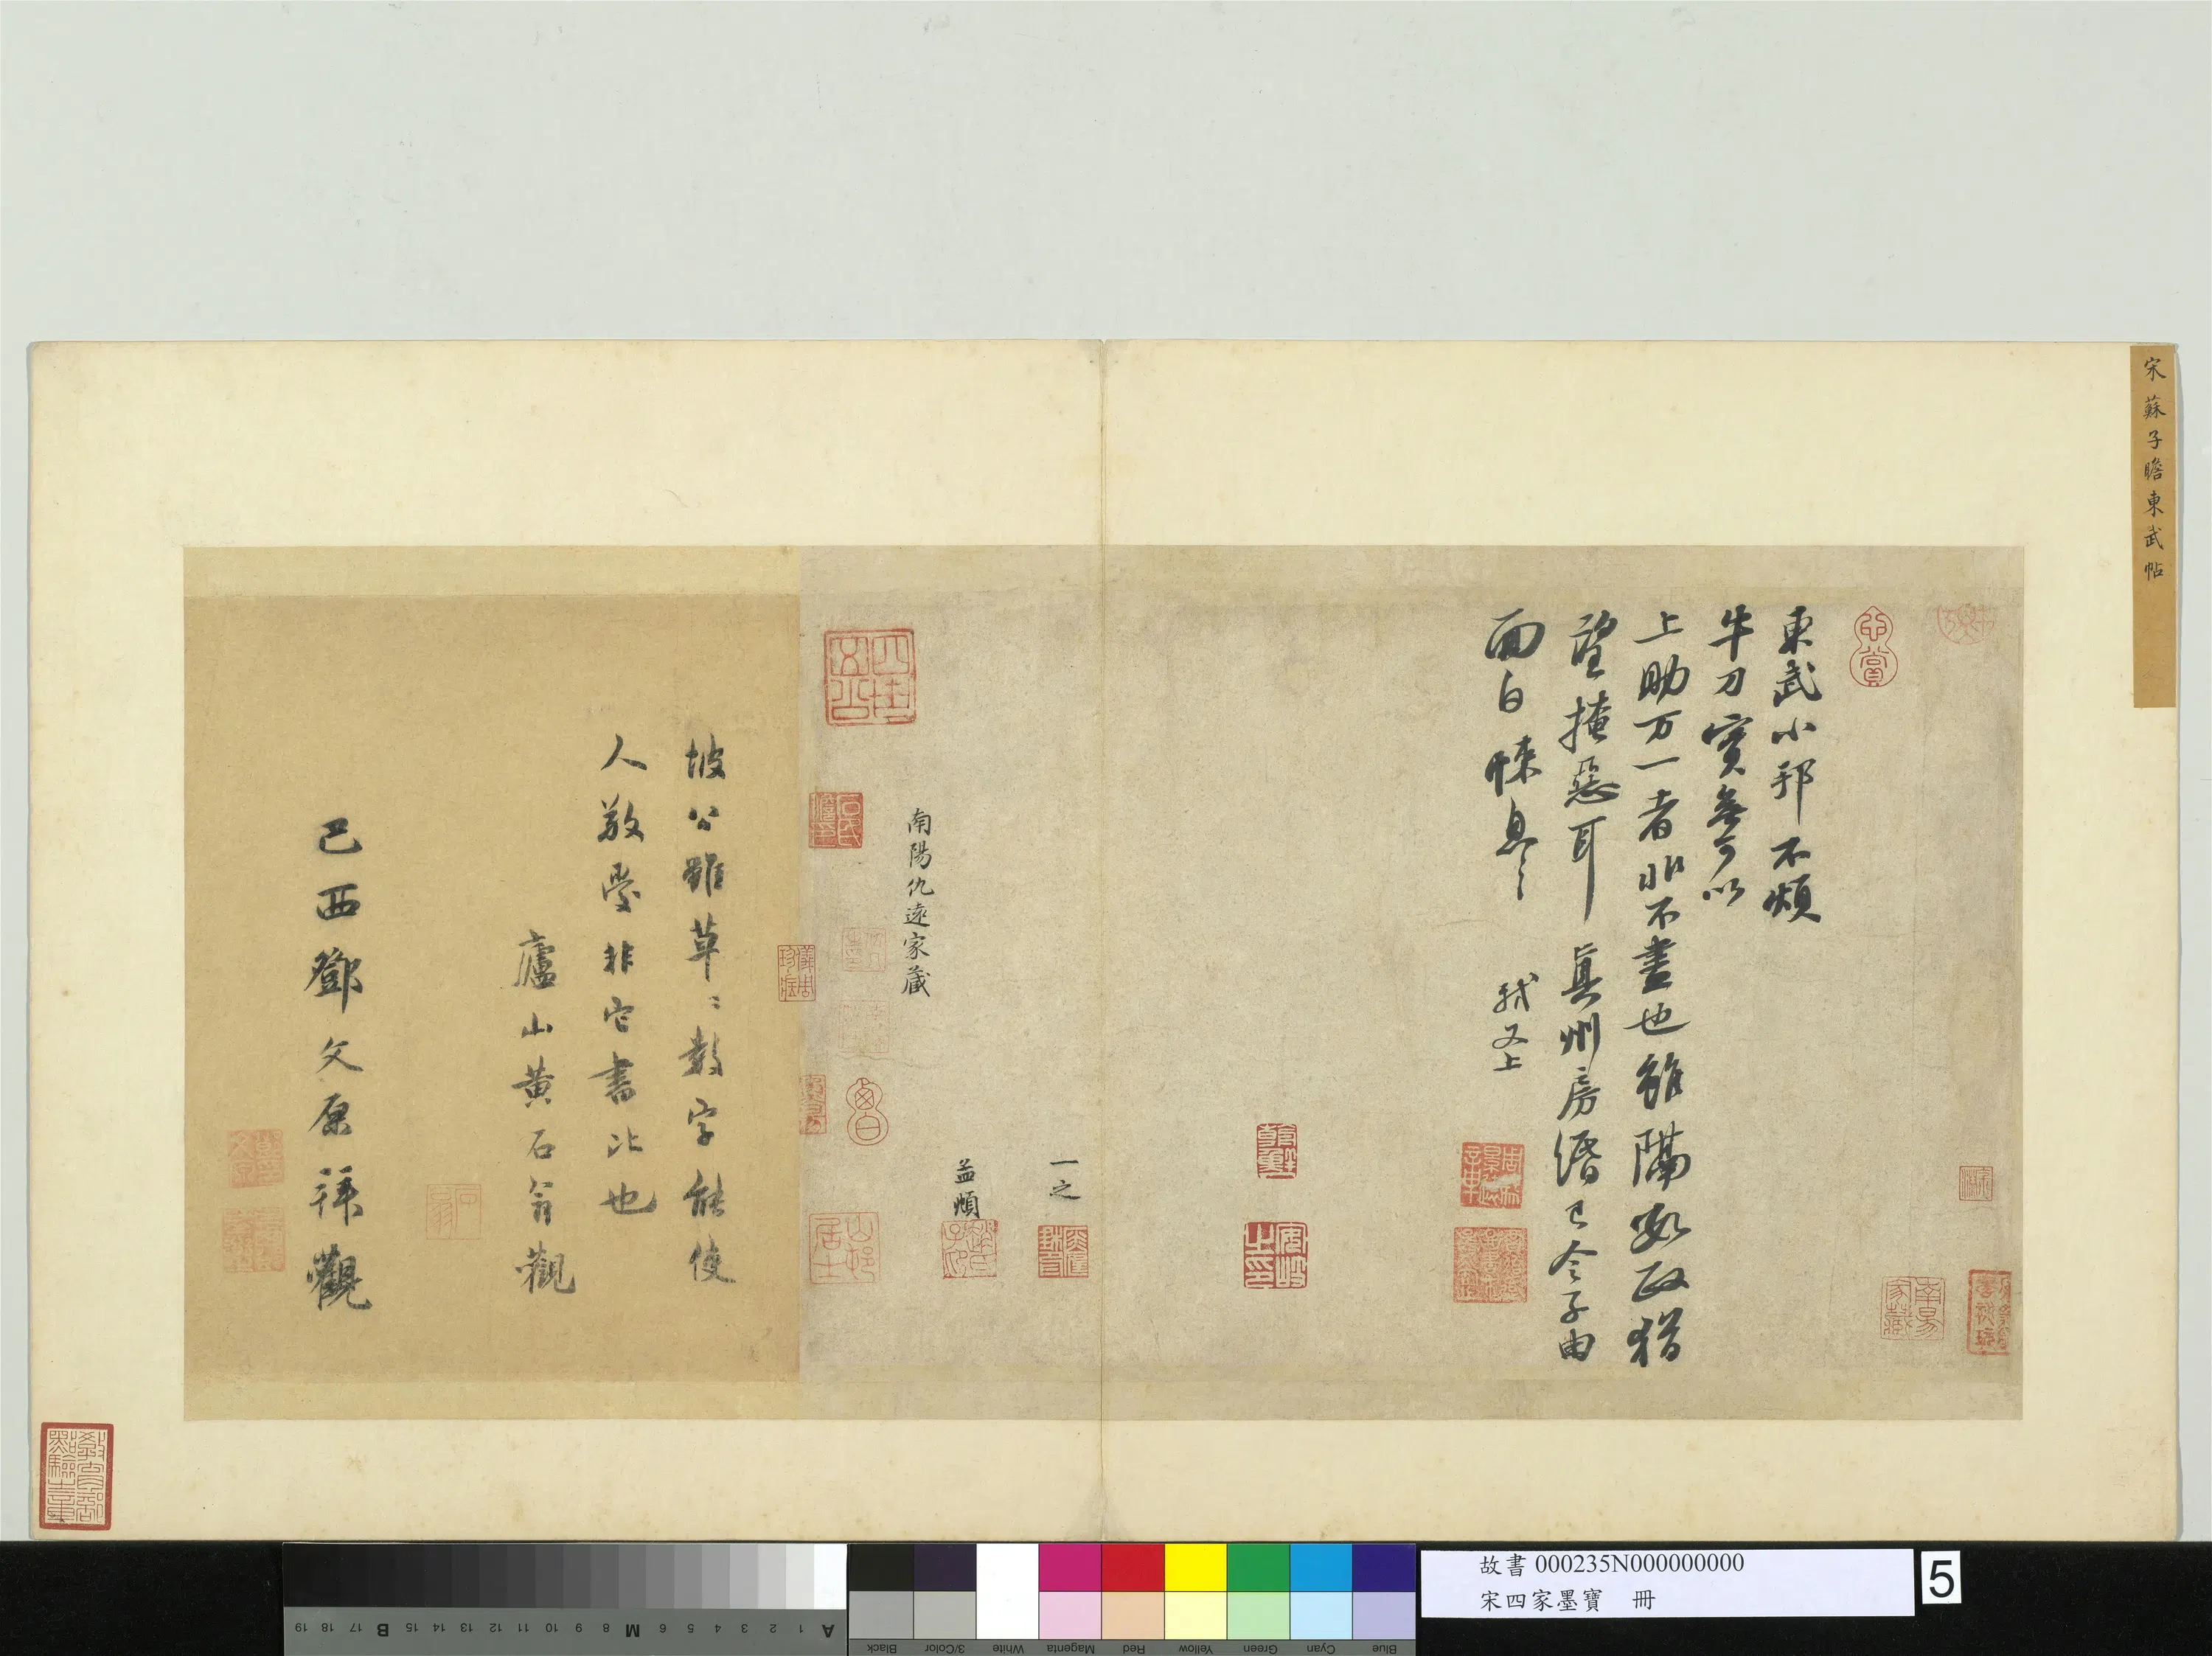 宋蘇子瞻東武帖
東武小邦不煩
牛刀實無可以
上助万一者非不盡也雖隔數政猶
望掩惡耳真州房緡已令子由
面白悚息〻軾又上
一之
益順
南陽仇遠家藏
坡公雖草〻數字能使
人敬愛非它書比也
廬山黃石翁觀
己酉鄧文原拜觀
教育部點驗之章
故書 000235N000000000
宋四家墨寶 冊
5
A 1 2 3 4 5 6 M 8 9 10 11 12 13 14 15 B 17 18 19
Blue Cyan Green Yellow Red Magenta White 3/Color Black